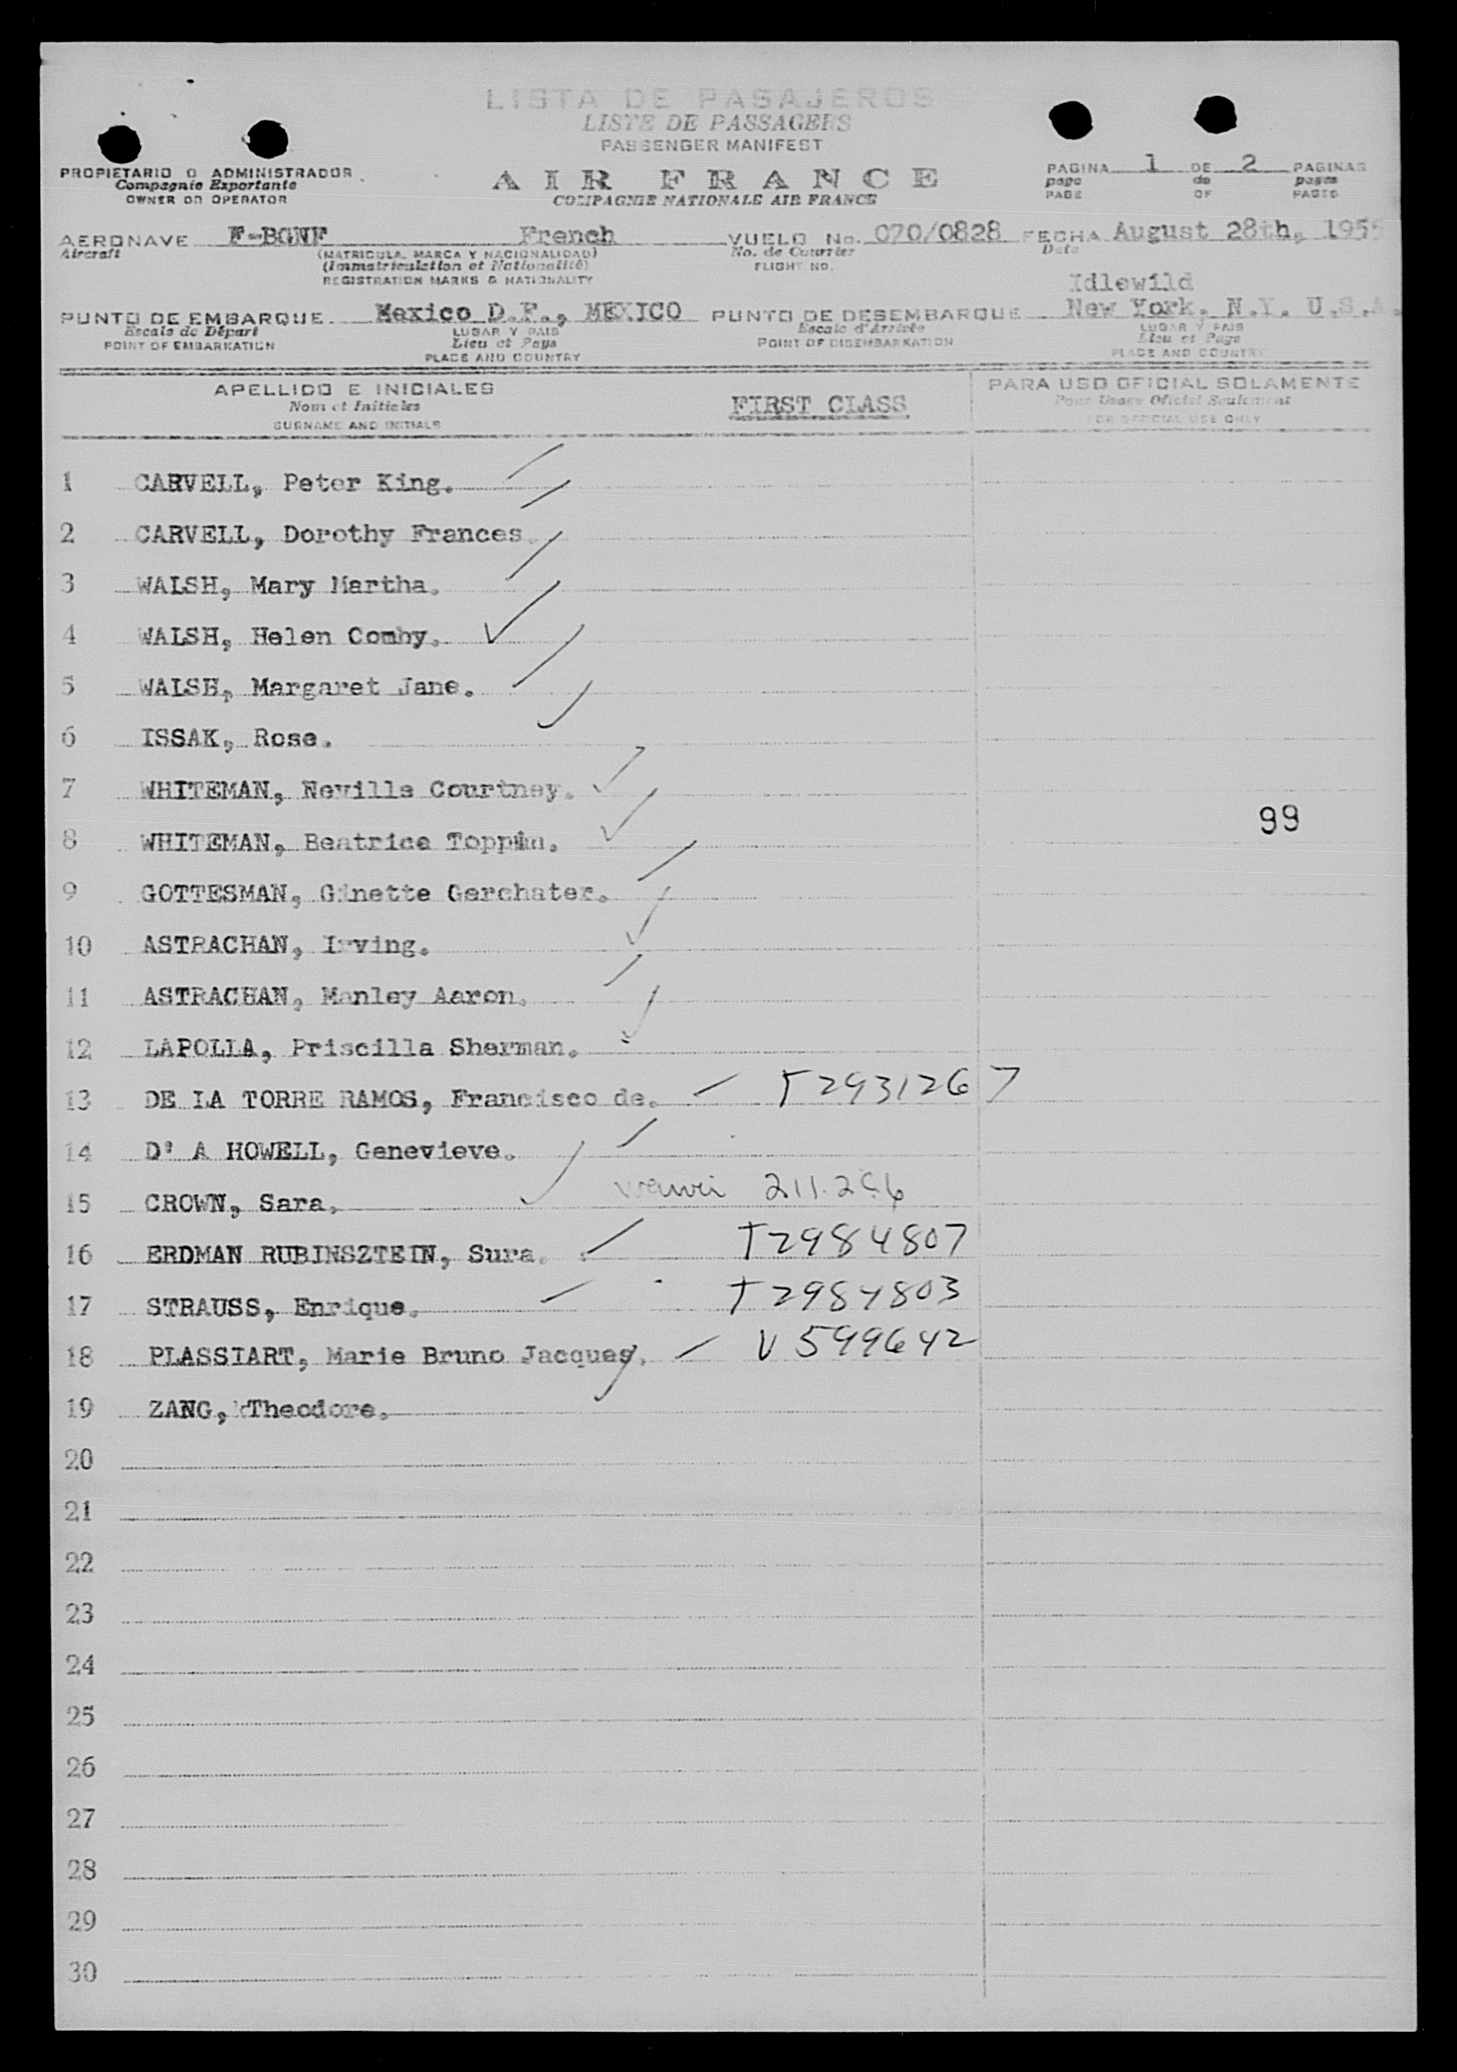 LISTA DE PASAJEROS
LISTE DE PASSAGERS
PASSENGER MANIFEST
PROPIETARIO O ADMINISTRADOR
Compagnie Exportante
OWNER OR OPERATOR
AIR FRANCE
COMPAGNIE NATIONALE AIR FRANCE
PAGINA 1 DE 2 PAGINAS
page de pages
PAGE OF PAGES
AERONAVE F-BGNF French VUELO No. 070/0828 FECHA August 28th, 1955
Aircraft (MATRICULA, MARCA Y NACIONALIDAD) No. de Courrier Date
(Immatriculation et Nationalité) FLIGHT NO.
REGISTRATION MARKS & NATIONALITY
Idlewild
PUNTO DE EMBARQUE Mexico D.F., MEXICO PUNTO DE DESEMBARQUE New York, N.Y. U.S.A.
Escale de Départ LUGAR Y PAIS Escale d'Arrivée LUGAR Y PAIS
POINT OF EMBARKATION Lieu et Pays POINT OF DISEMBARKATION Lieu et Pays
PLACE AND COUNTRY PLACE AND COUNTRY
APELLIDO E INICIALES FIRST CLASS PARA USO OFICIAL SOLAMENTE
Nom et Initiales Pour Usage Officiel Seulement
SURNAME AND INITIALS FOR OFFICIAL USE ONLY
1 CARVELL, Peter King.
2 CARVELL, Dorothy Frances.
3 WALSH, Mary Martha.
4 WALSH, Helen Comhy.
5 WALSH, Margaret Jane.
6 ISSAK, Rose.
7 WHITEMAN, Neville Courtney.
99
8 WHITEMAN, Beatrice Toppin.
9 GOTTESMAN, Ginette Gerchater.
10 ASTRACHAN, Irving.
11 ASTRACHAN, Manley Aaron.
12 LAPOLLA, Priscilla Sherman.
13 DE LA TORRE RAMOS, Francisco de. T2931267
14 D' A HOWELL, Genevieve.
15 CROWN, Sara. 211.296
16 ERDMAN RUBINSZTEIN, Sura. T2984807
17 STRAUSS, Enrique. T2984803
18 PLASSIART, Marie Bruno Jacques. V599642
19 ZANG, Theodore.
20
21
22
23
24
25
26
27
28
29
30